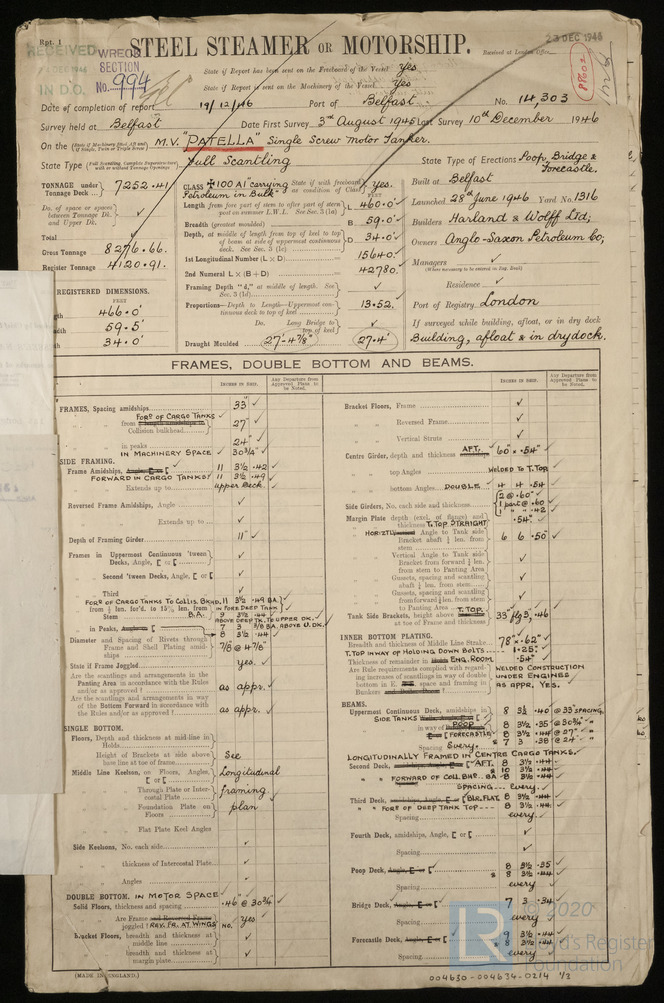 Rpt. 1
RECEIVED
DEC 1946
IN D.O.
WRECK
SECTION
No. 994
STEEL STEAMER OR MOTORSHIP.
23 DEC 1946
Received at London Office
State if Report has been sent on the Freeboard of the Vessel yes
State if Report is sent on the Machinery of the Vessel Yes
Date of completion of report 19/12/46 Port of Belfast No. 14,303
Survey held at Belfast Date First Survey 3rd August 1945 Last Survey 10th December 1946
On the (State if Machinery fitted Aft and if Single, Twin or Triple Screw) M.V. "PATELLA" Single Screw Motor Tanker.
State Type (Full Scantling, Complete Superstructure with or without Tonnage Openings) Full Scantling State Type of Erections Poop, Bridge & Forecastle.
TONNAGE under Tonnage Deck ... 7252.41
Do. of space or spaces between Tonnage Dk. and Upper Dk.
Total
Gross Tonnage 8276.66.
Register Tonnage 4120.91.
REGISTERED DIMENSIONS.
FEET
466.0'
59.5'
34.0'
CLASS +100A1 "carrying Petroleum in Bulk" State if with freeboard as condition of Class Yes.
Length from fore part of stem to after part of stern post on summer L.W.L. See Sec. 3 (1a) L 460.0'
Breadth (greatest moulded) B 59.0'
Depth, at middle of length from top of keel to top of beam at side of uppermost continuous deck. See Sec. 3 (1c) D 34.0'
1st Longitudinal Number (L x D) 15640.
2nd Numeral L x (B + D) 42780.
Framing Depth "d," at middle of length. See Sec. 3 (1d)
Proportions—Depth to Length—Uppermost continuous deck to top of keel 13.52.
Do. Long Bridge to top of keel
Draught Moulded 27'-4⅞" 27.4'
Built at Belfast
Launched 28th June 1946 Yard No. 1316
Builders Harland & Wolff Ltd;
Owners Anglo-Saxon Petroleum Co;
Managers
(Where necessary to be entered in Reg. Book)
Residence
Port of Registry London
If surveyed while building, afloat, or in dry dock
Building, afloat & in drydock.
FRAMES, DOUBLE BOTTOM AND BEAMS.
INCHES IN SHIP.
Any Departure from Approved Plans to be Noted.
FRAMES, Spacing amidships 33"
FORD OF CARGO TANKS
from Collision bulkhead 27"
in peaks 24"
IN MACHINERY SPACE 30¾"
SIDE FRAMING.
Frame Amidships, 11 3½ .42
FORWARD IN CARGO TANKS 11 3½ .49
Extends up to upper deck.
Reversed Frame Amidships, Angle
Extends up to
Depth of Framing Girder 11"
Frames in Uppermost Continuous 'tween Decks, Angle, [ or [
Second 'tween Decks, Angle, [ or [
Third
FORD OF CARGO TANKS TO COLLIS. BKHD. 11 3½ .49 BA.
from ⅕ len. for'd. to 15% len. from Stem B.A. IN FORE DEEP TANK
9 3½ .44 ABOVE DEEP TK. TO UPPER DK.
7 3 3/8 BA. ABOVE U. DK.
in Peaks, 8 3½ .44
Diameter and Spacing of Rivets through Frame and Shell Plating amidships ⅞ @ 4⅞"
State if Frame Joggled yes.
Are the scantlings and arrangements in the Panting Area in accordance with the Rules and/or as approved? as appr.
Are the scantlings and arrangements in way of the Bottom Forward in accordance with the Rules and/or as approved? as appr.
SINGLE BOTTOM.
Floors, Depth and thickness at mid-line in Holds
Height of Brackets at side above base line at toe of frame See
Middle Line Keelson, on Floors, Angles, [ or [ Longitudinal
Through Plate or Intercostal Plate framing
Foundation Plate on Floors plan
Flat Plate Keel Angles
Side Keelsons, No. each side
thickness of Intercostal Plate
Angles
DOUBLE BOTTOM. IN MOTOR SPACE
Solid Floors, thickness and spacing .46" @ 30¾"
Are Frame and Reversed Frame joggled? REV. FR. AT WINGS NO. yes
Bracket Floors, breadth and thickness at middle line
breadth and thickness at margin plate
(MADE IN ENGLAND.)
Bracket Floors, Frame
Reversed Frame
Vertical Struts
Centre Girder, depth and thickness AFT. 60" x .54"
top Angles WELDED TO T.TOP
bottom Angles DOUBLE 4 4 .54
Side Girders, No. each side and thickness 2 @ .60"
1 part @ .60
1 " " .42
Margin Plate depth (excl. of flange) and thickness T.TOP STRAIGHT .54"
HORZTL Angle to Tank side Bracket abaft ¼ len. from stem 6 6 .50"
Vertical Angle to Tank side Bracket from forward ¼ len. from stem to Panting Area
Gussets, spacing and scantling abaft ¼ len. from stem
Gussets, spacing and scantling from forward ¼ len. from stem to Panting Area
Tank Side Brackets, height above T.TOP at toe of Frame and thickness 33" flg 3", .46
INNER BOTTOM PLATING.
Breadth and thickness of Middle Line Strake 78" x .62"
T.TOP IN WAY OF HOLDING DOWN BOLTS 1.25"
Thickness of remainder in ENG. ROOM .54"
Are Rule requirements complied with regarding increases of scantlings in way of double bottom in E. space and framing in Bunkers WELDED CONSTRUCTION UNDER ENGINES AS APPR. YES.
BEAMS.
Uppermost Continuous Deck, amidships in SIDE TANKS 8 3½ .40 @ 33" SPACING
in way of POOP 8 3½ .35 @ 30¾" "
FORECASTLE 8 3½ .44 @ 27" "
7 3 .38 @ 24" "
Spacing Every.
LONGITUDINALLY FRAMED IN CENTRE CARGO TANKS.
Second Deck, AFT. 8 3½ .44
10 3½ .44
FORWARD OF COLL BHD. BA 8 3½ .44
SPACING every.
Third Deck, BLR. FLAT. 8 3½ .44
" " FORD OF DEEP TANK TOP 8 3½ .44
every.
Fourth Deck, amidships, Angle, [ or [
Spacing
Poop Deck, 8 3½ .35
8 3½ .44
Spacing every
Bridge Deck, 7 3 .34
Spacing every
Forecastle Deck, 9 3½ .44
8 3½ .44
Spacing every
LR
© 2020
Lloyd's Register
Foundation
004630-004634-0214 ½